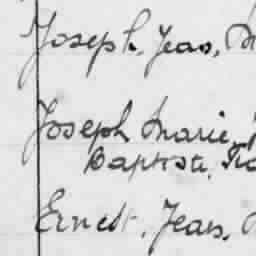 Joseph, Jean,
Joseph Marie,
Baptiste,
Ernest, Jean,